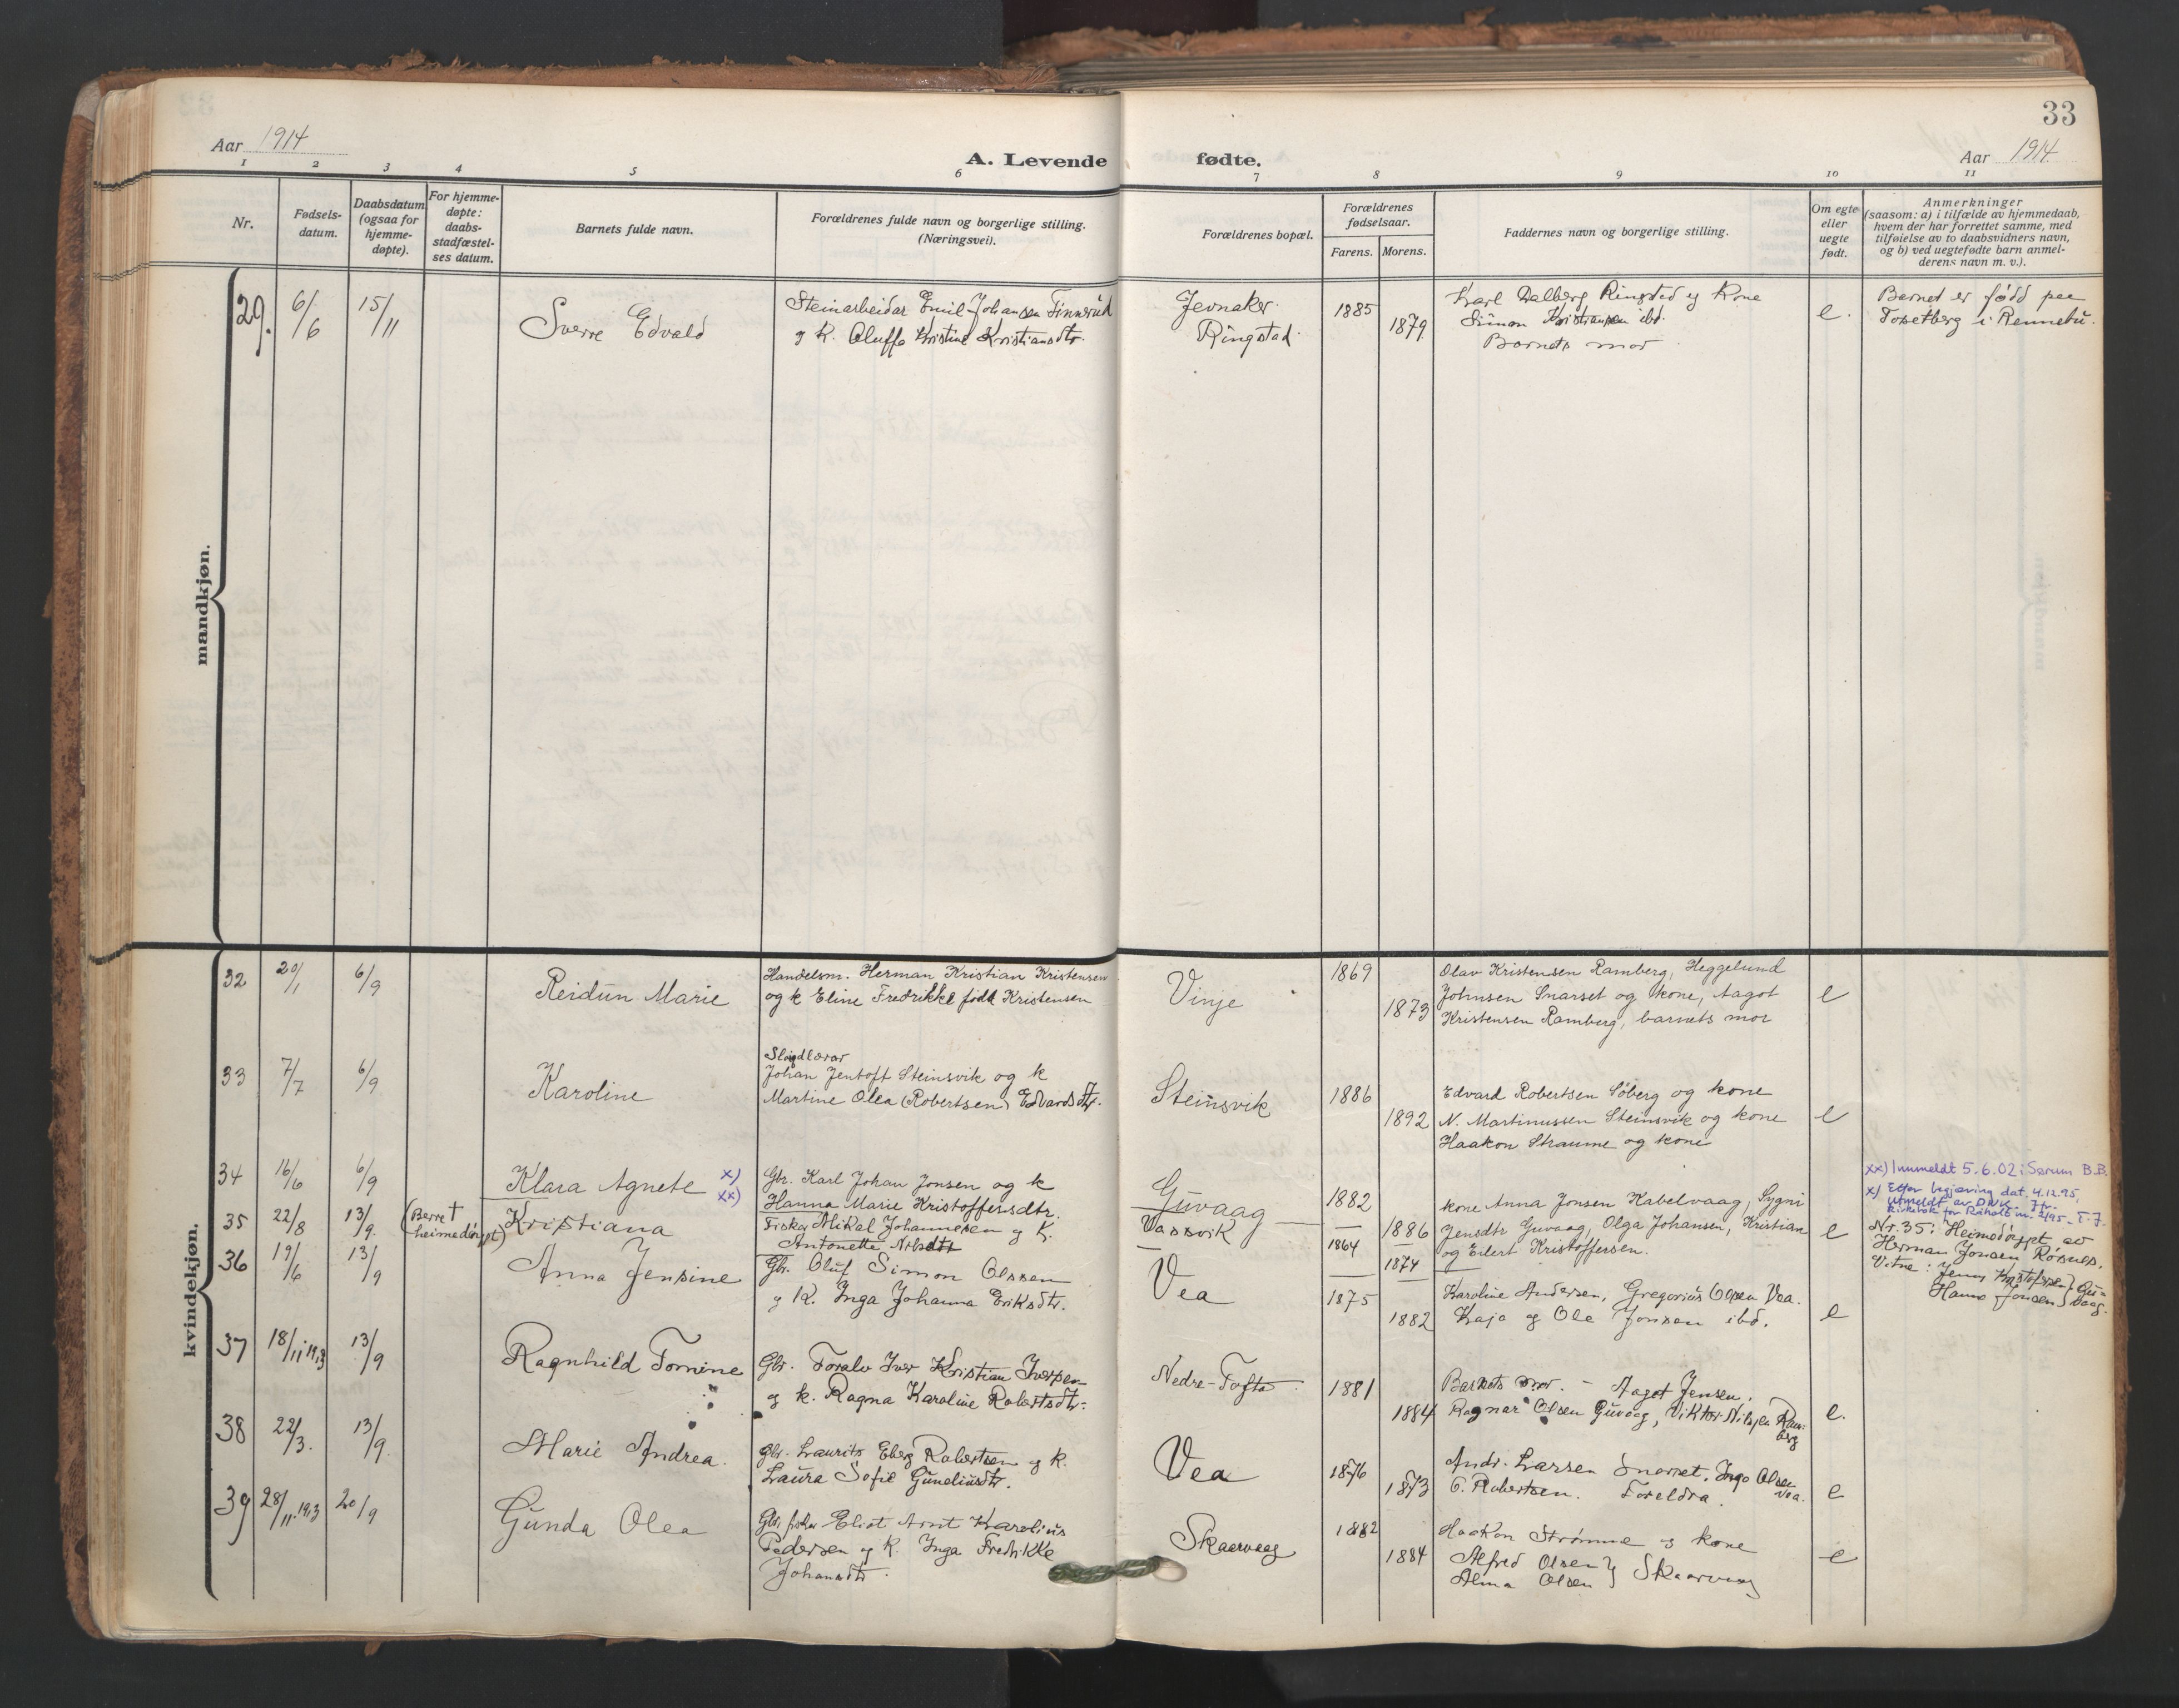 33
Aar 1914
A. Levende fødte.
Aar 1914
1 2 3 4 5 6 7 8 9 10 11
Nr.
Fødsels-
datum.
Daabsdatum
(ogsaa for
hjemme-
døpte).
For hjemme-
døpte:
daabs-
stadfæstel-
ses datum.
Barnets fulde navn.
Forældrenes fulde navn og borgerlige stilling.
(Næringsvei).
Forældrenes bopæl.
Forældrenes
fødselsaar.
Farens. Morens.
Faddernes navn og borgerlige stilling.
Om egte
eller
uegte
født.
Anmerkninger
(saasom: a) i tilfælde av hjemmedaab,
hvem der har forrettet samme, med
tilføielse av to daabsvidners navn,
og b) ved uegtefødte barn anmel-
derens navn m. v.).
mandkjøn.
29. 6/6 15/11
Sverre Edvald
Steinarbeidar Emil Johansen Finnerud
og K. Oluffa Kristine Kristiansdtr.
Jevnaker
Ringstad
1885
1879
Karl Dalberg Ringstad og Kone
Simon Kristiansen ibd.
Barnets mor
e.
Barnet er fødd paa
Tosetberg i Rennebu.
kvindekjøn.
32 20/1 6/9
Reidun Marie
Handelsm. Herman Kristian Kristensen
og k Eline Fredrikke født Kristensen
Vinje
1869
1873
Olav Kristensen Ramberg, Heggelund
Johnsen Snarset og kone, Aagot
Kristensen Ramberg, barnets mor
e
33 7/7 6/9
Karoline
Sløidlærar
Johan Jentoft Steinsvik og k
Martine Olea (Robertsen) Edvardsdtr.
Steinsvik
1886
1892
Edvard Robertsen Søberg og kone
N. Martinussen Steinsvik og kone
Haakon Straume og kone
e
34 16/6 6/9
Klara Agnete x)
xx)
Gbr. Karl Johan Jonsen og k
Hanna Marie Kristoffersdtr.
Guvaag
1882
1886
kone Anna Jonsen Kabelvaag, Sygni
Jensdtr Guvaag, Olga Johansen, Kristian
og Eilert Kristoffersen.
e
xx) Innmeldt 5.6.02 i Sørum B.B.
x) Etter begjæring dat. 4.12.95,
utmeldt av DNK.
35 22/8 13/9.
(Berre †
heimedøypt)
Kristiana
Fisker Mikal Johannesen og K.
Antonette Nilsdtr
Vassvik
1864
1874
Nr. 35: Heimedøypt av
Herman Jonsen Røsnes.
Vitne: Jenny Kristofersen } Gu-
Hanna Jonsen } vaag.
36 19/6 13/9
Anna Jensine
Gbr. Oluf Simon Olssen
og K. Inga Johanna Eriksdtr.
Vea
1875
1882
Karoline Andersen, Gregorius Olsen Vea.
Kaja og Ole Jonsen ibd.
e
37 18/11 1913 13/9
Ragnhild Tomine
Gbr. Toralv Iver Kristian Iversen
og k. Ragna Karoline Robertsdtr.
Nedre-Tofte
1881
1884
Barnets mor. - Aagot Jensen.
Ragnar Olsen Guvaag, Viktor Nilsen Ram-
berg
e.
38 22/3. 13/9.
Marie Andrea.
Gbr. Laurits Eberg Robertsen og K.
Laura Sofie Guneliusdtr.
Vea
1876
1873
Andr. Larsen Snarset, Inga Olsen
Vea.
C. Robertsen. Foreldra.
e
39 28/11. 1913 20/9
Gunda Olea
Gbr. fisker Eliot Arnt Karelius
Pedersen og K. Inga Fredrikke
Johansdtr.
Skaarvaag
1882
1884
Haakon Strømme og kone
Alfred Olsen }
Alma Olsen } Skaarvaag
e